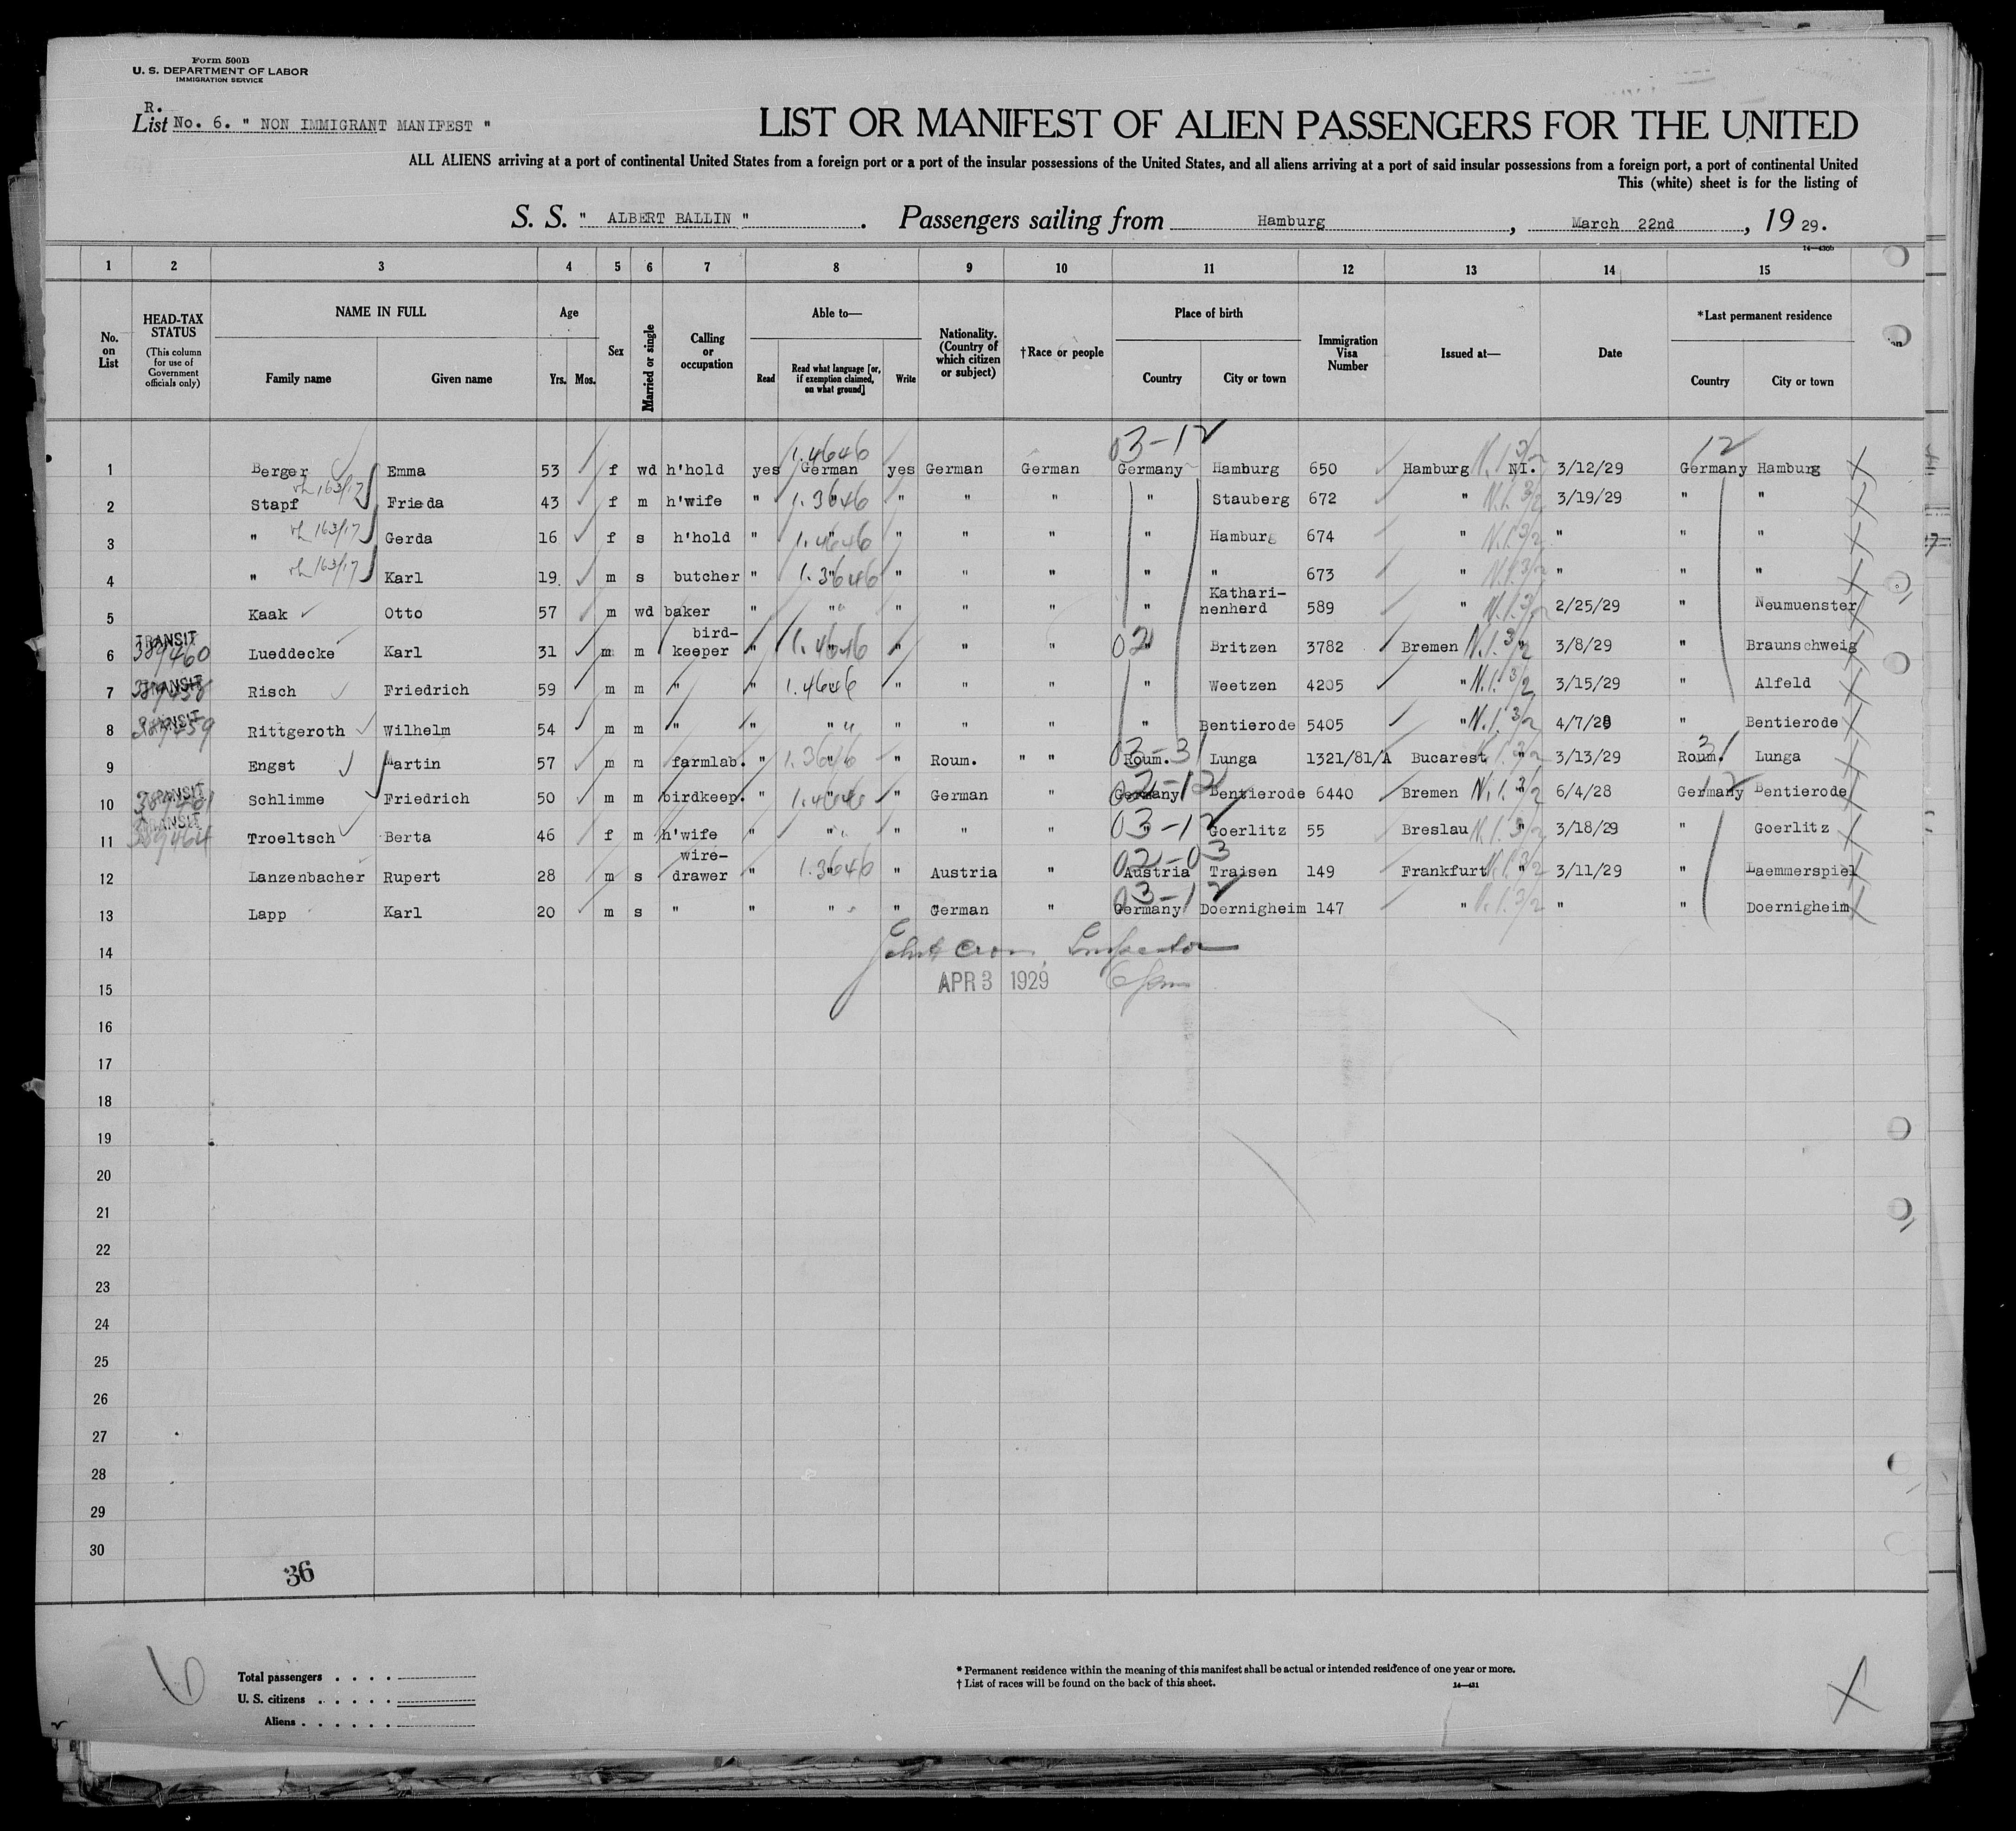 Form 500B
U. S. DEPARTMENT OF LABOR
IMMIGRATION SERVICE
R.
List No. 6. " NON IMMIGRANT MANIFEST "
LIST OR MANIFEST OF ALIEN PASSENGERS FOR THE UNITED
ALL ALIENS arriving at a port of continental United States from a foreign port or a port of the insular possessions of the United States, and all aliens arriving at a port of said insular possessions from a foreign port, a port of continental United
This (white) sheet is for the listing of
S. S. " ALBERT BALLIN " . Passengers sailing from Hamburg , March 22nd , 19 29.
14—430b
1 2 3 4 5 6 7 8 9 10 11 12 13 14 15
No. on List
HEAD-TAX STATUS (This column for use of Government officials only)
NAME IN FULL Family name Given name
Age Yrs. Mos.
Sex
Married or single
Calling or occupation
Able to— Read Read what language [or, if exemption claimed, on what ground] Write
Nationality. (Country of which citizen or subject)
†Race or people
Place of birth Country City or town
Immigration Visa Number
Issued at—
Date
*Last permanent residence Country City or town
03-12 12
1.4646
1 Berger Emma 53 f wd h'hold yes German yes German German Germany Hamburg 650 Hamburg N.I. 3/2 NI. 3/12/29 Germany Hamburg
163/17
2 Stapf Frieda 43 f m h'wife " 1.3646 " " " " " Stauberg 672 " N.I. 3/2 3/19/29 " "
163/17
3 " Gerda 16 f s h'hold " 1.4646 " " " " " Hamburg 674 " N.I. 3/2 " " "
163/17
4 " Karl 19 m s butcher " 1.3646 " " " " " " 673 " N.I. 3/2 " " "
5 Kaak Otto 57 m wd baker " " " " " " Kathari-nenherd 589 " N.I. 3/2 2/25/29 " Neumuenster
TRANSIT
6 389460 Lueddecke Karl 31 m m bird-keeper " 1.4646 " " " " 02 " Britzen 3782 Bremen N.I. 3/2 " 3/8/29 " Braunschweig
TRANSIT
7 Risch Friedrich 59 m m " " 1.4646 " " " " Weetzen 4205 " N.I. 3/2 3/15/29 " Alfeld
TRANSIT
8 Rittgeroth Wilhelm 54 m m " " " " " " " Bentierode 5405 " N.I. 3/2 4/7/28 " Bentierode
03-3 3
9 Engst Martin 57 m m farmlab. " 1.3646 " " Roum. " " Roum. Lunga 1321/81/A Bucarest N.I. 3/2 " 3/13/29 Roum. Lunga
TRANSIT 02-12 12
10 Schlimme Friedrich 50 m m birdkeep. " 1.4646 " " German " Germany Bentierode 6440 Bremen N.I. 3/2 " 6/4/28 Germany Bentierode
TRANSIT 03-12
11 389464 Troeltsch Berta 46 f m h'wife " " " " " " Goerlitz 55 Breslau N.I. 3/2 " 3/18/29 " Goerlitz
02-03
12 Lanzenbacher Rupert 28 m s wire-drawer " 1.3646 " " Austria " Austria Traisen 149 Frankfurt N.I. 3/2 " 3/11/29 " Laemmerspiel
03-12
13 Lapp Karl 20 m s " " " " German " Germany Doernigheim 147 " N.I. 3/2 " " Doernigheim
14 Inspector
15 APR 3 1929
16
17
18
19
20
21
22
23
24
25
26
27
28
29
30
36
6
Total passengers . . . .
U. S. citizens . . . . .
Aliens . . . . . .
* Permanent residence within the meaning of this manifest shall be actual or intended residence of one year or more.
† List of races will be found on the back of this sheet.
14—431